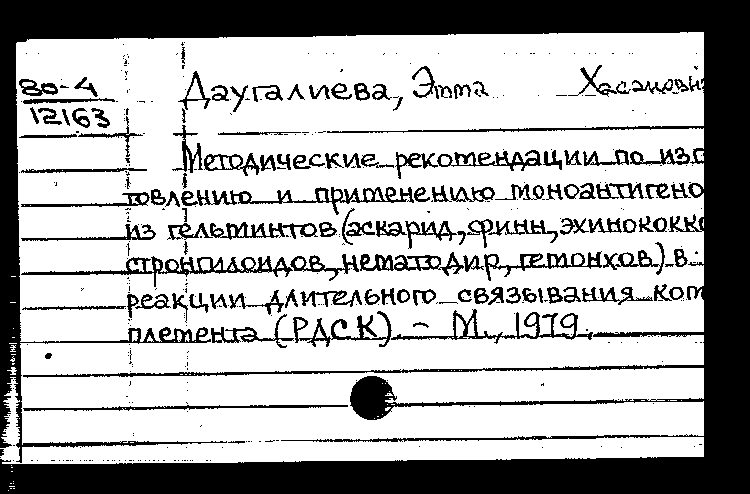 80-4
12163
Даугалиева, Этта Хасановн
Методические рекомендации по изг
товлению и применению моноантигено
из гельминтов (аскарид, финн, эхинококко
стронгилоидов, нематодир, гемонхов) в
реакции длительного связывания ком
племента (РДСК). – М., 1979.